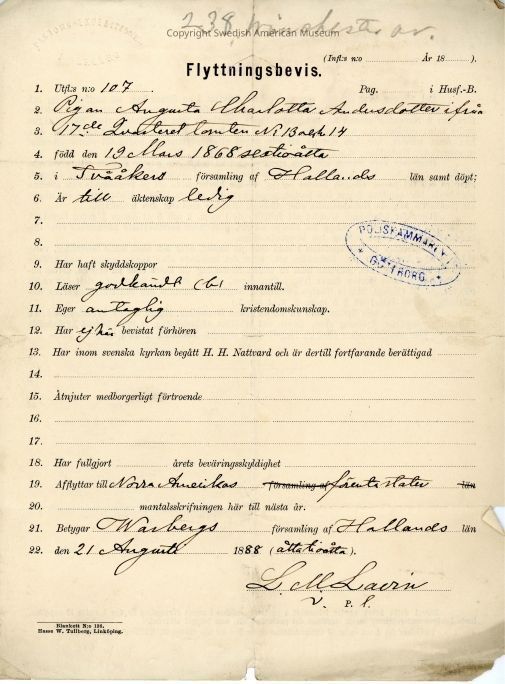 238 Winchester av.
Copyright Swedish American Museum
(Infl:s n:o År 18 ).
Flyttningsbevis.
1. Utfl:s n:o 107. Pag. i Husf.-B.
2. Pigan Augusta Charlotta Andersdotter ifrån
3. 17de Qvarteret tomten No 13 och 14
4. född den 19 Mars 1868 sextioåtta
5. i Tvååkers församling af Hallands län samt döpt;
6. Är till äktenskap ledig
7.
8.
POLISKAMMAREN I GÖTEBORG
9. Har haft skyddskoppor
10. Läser godkändt (b) innantill.
11. Eger antaglig kristendomskunskap.
12. Har ej här bevistat förhören
13. Har inom svenska kyrkan begått H. H. Nattvard och är dertill fortfarande berättigad
14.
15. Åtnjuter medborgerligt förtroende
16.
17.
18. Har fullgjort årets beväringsskyldighet
19. Afflyttar till Norra Amerikas församling af förenta stater län
20. mantalsskrifningen här till nästa år.
21. Betygar Warbergs församling af Hallands län
22. den 21 Augusti 1888 (åttatioåtta).
L. M. Lavin
v. P. l.
Blankett N:o 126.
Hasse W. Tullberg, Linköping.